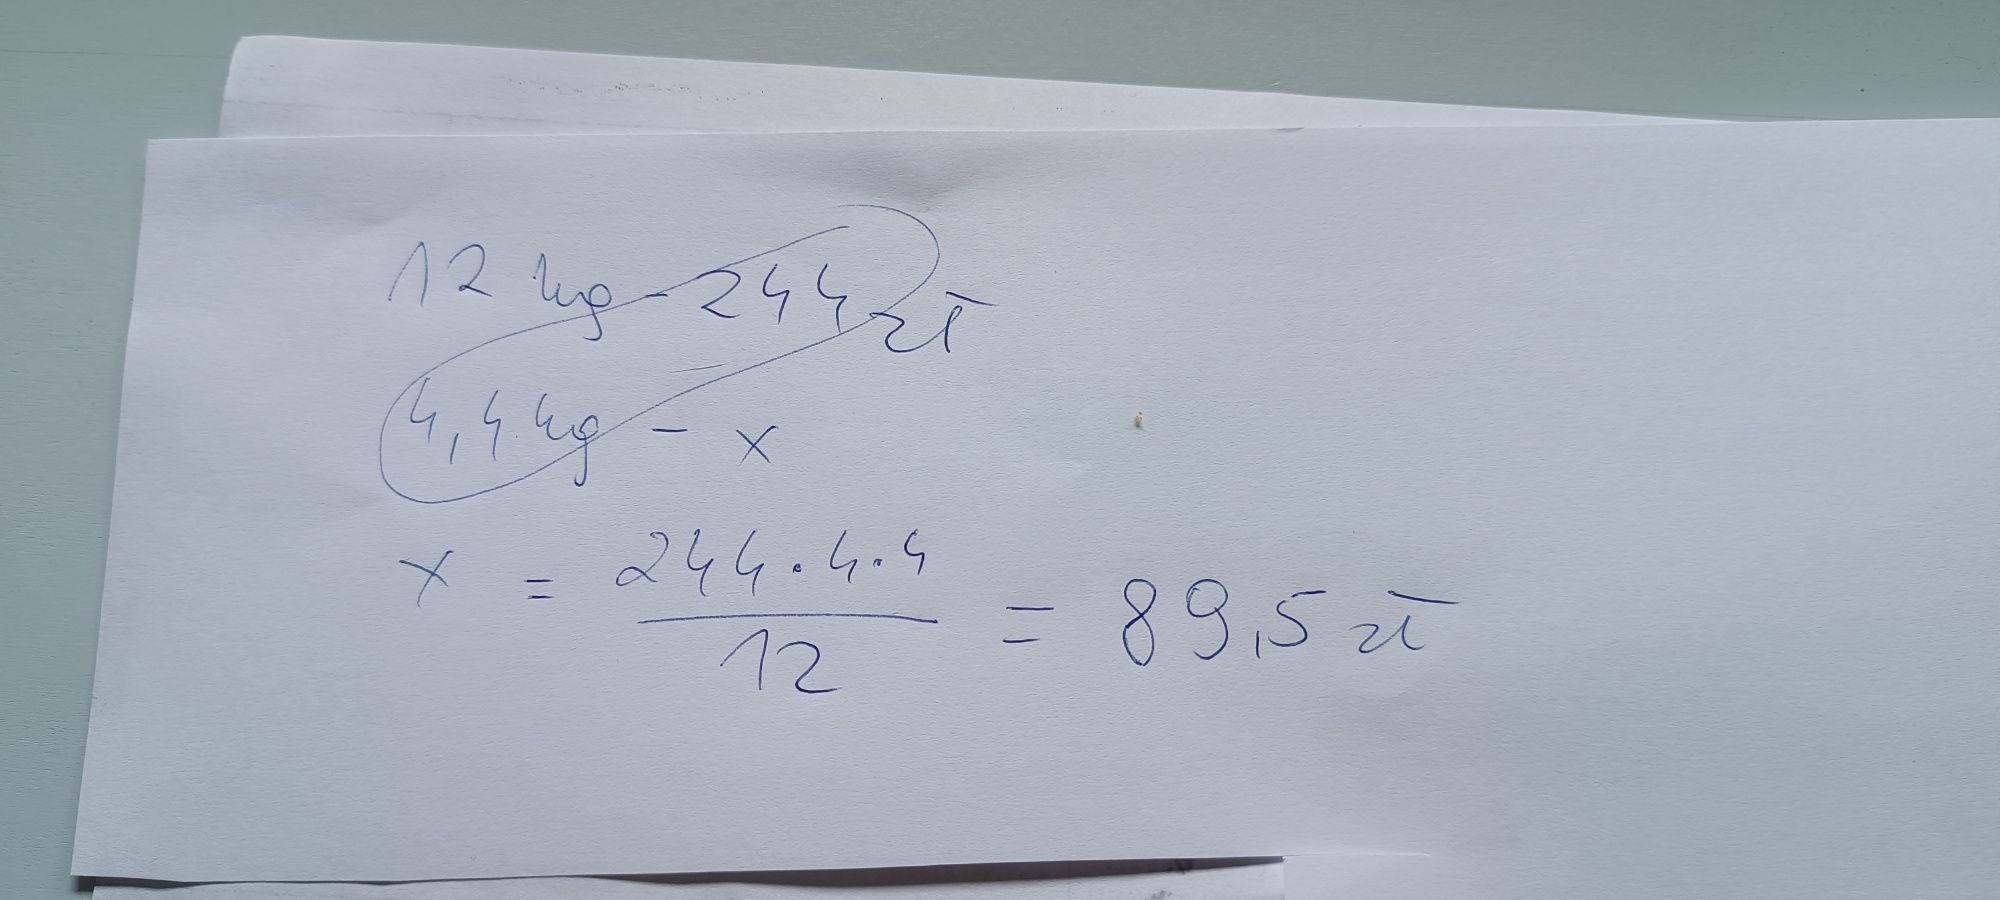 12 kg - 244 zł
4,4 kg - x
x = 244·4·4 / 12 = 89,5 zł